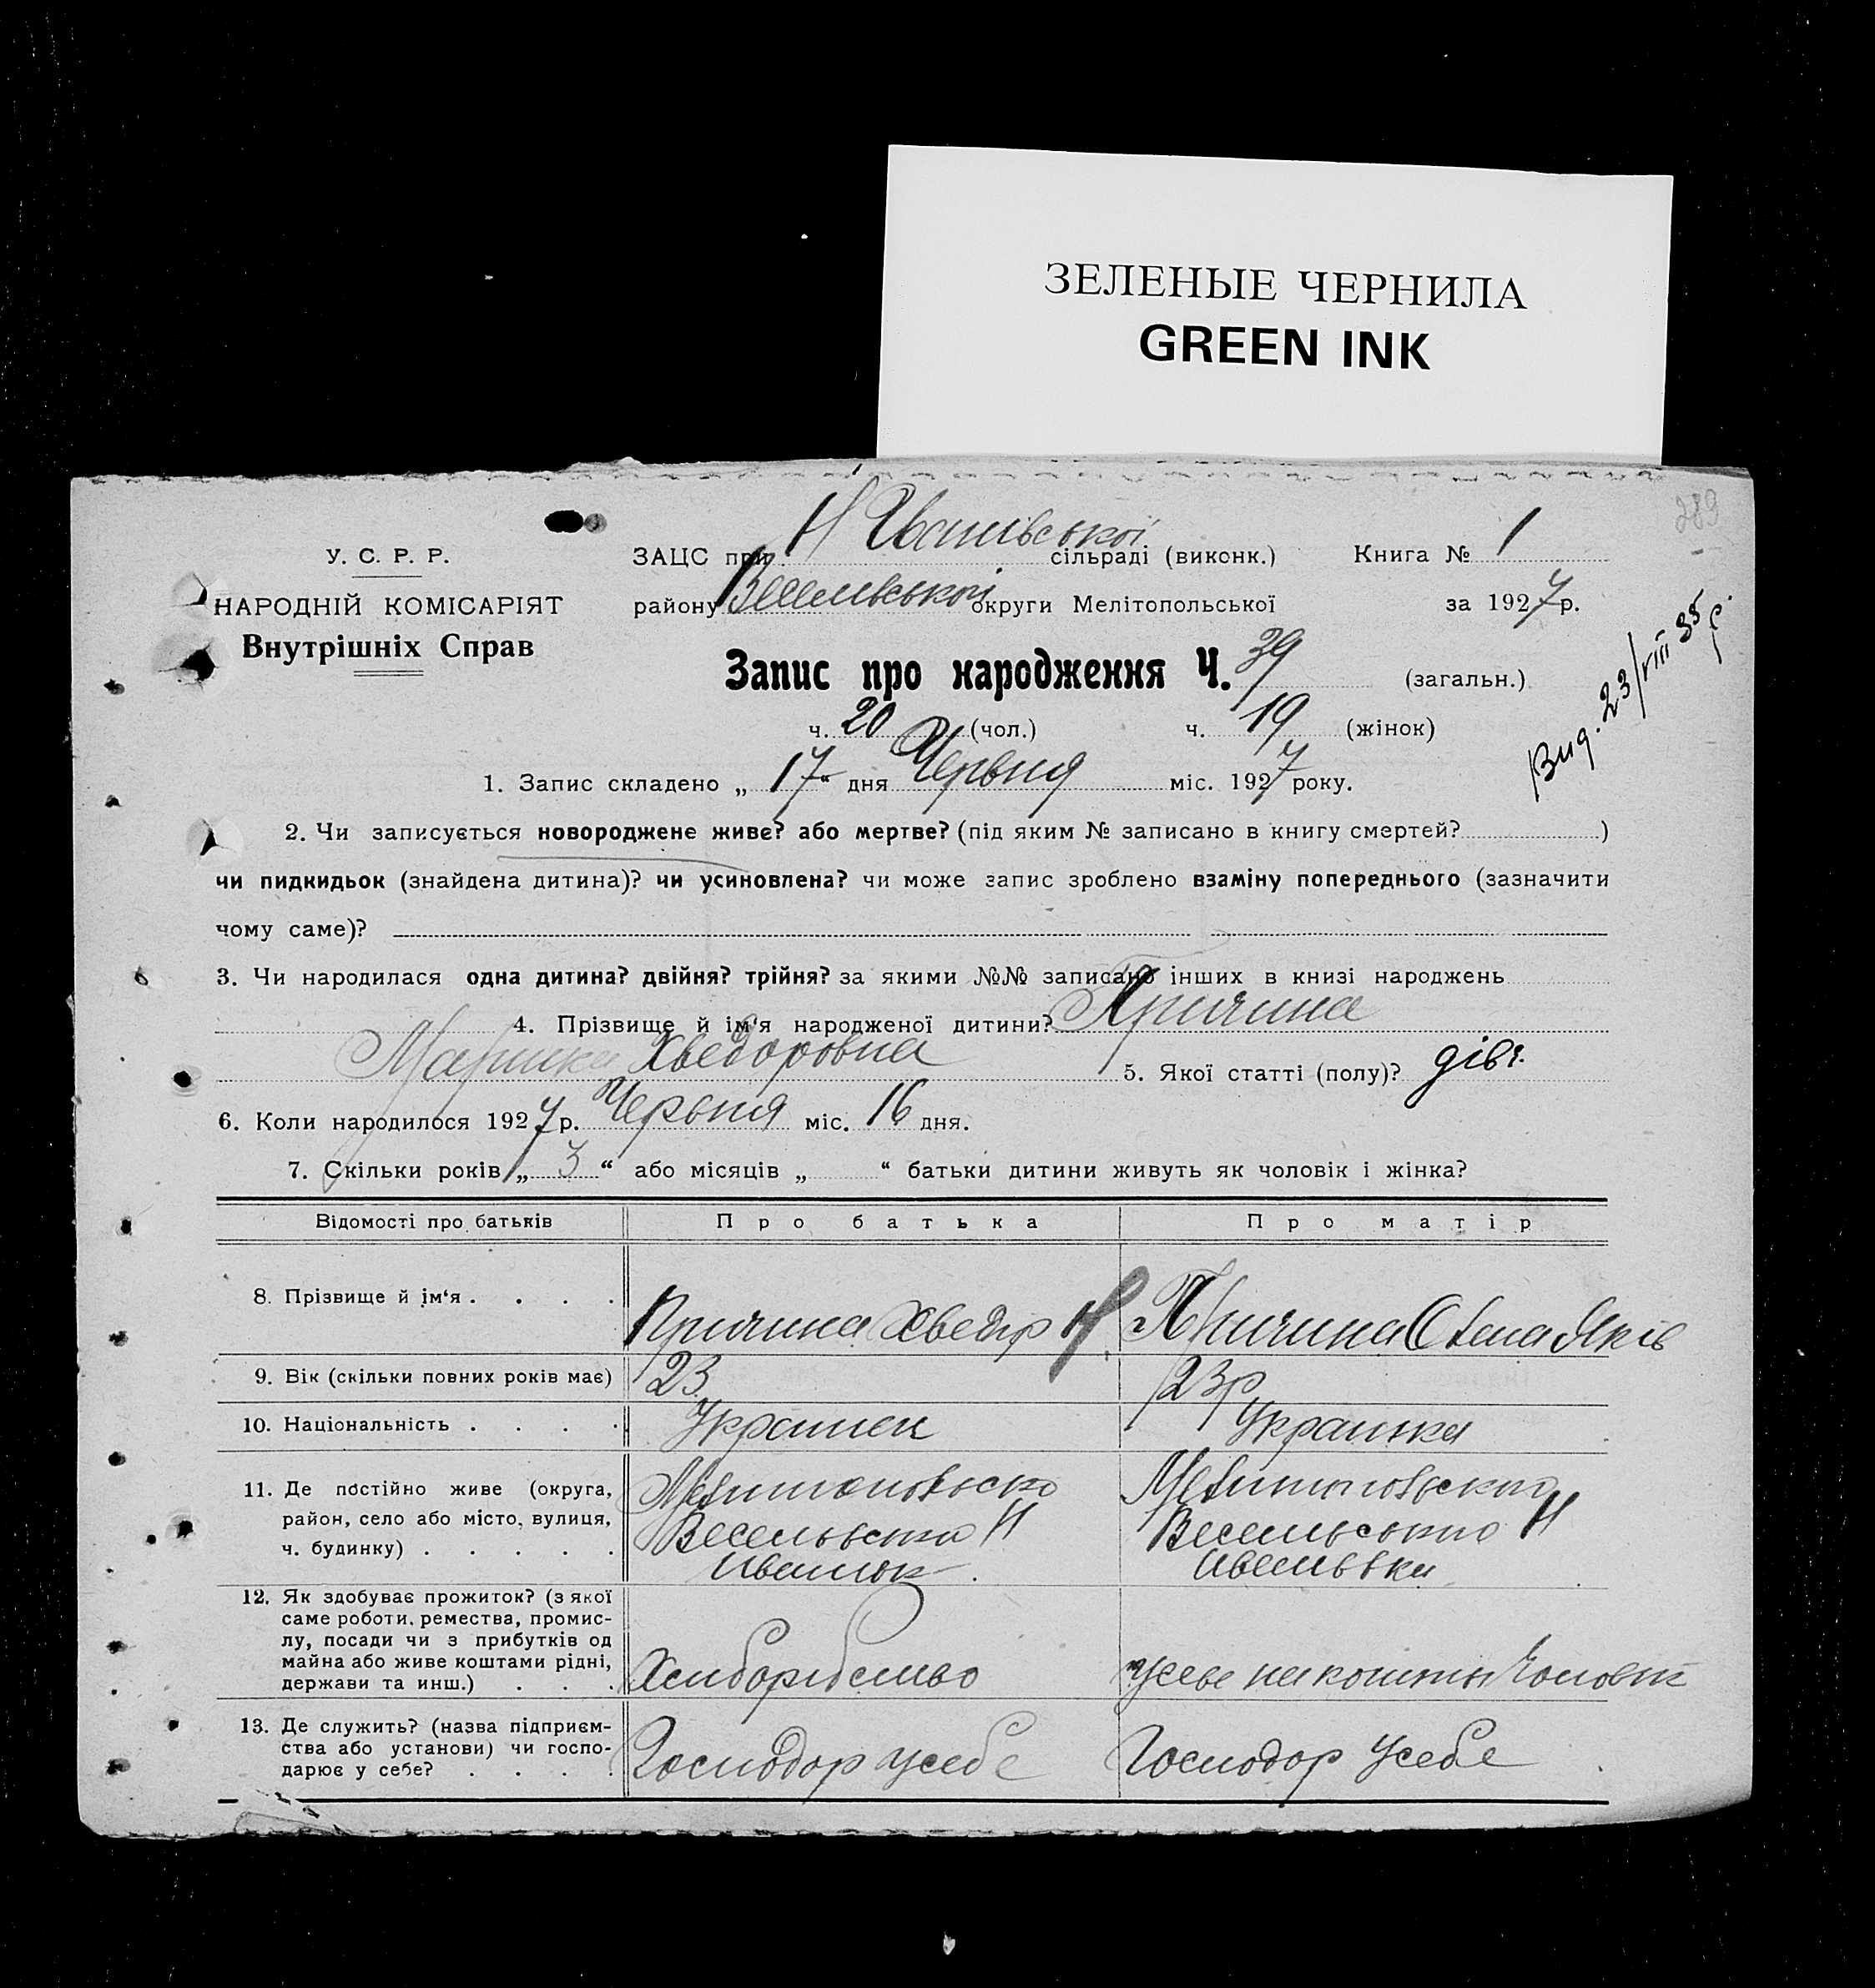 ЗЕЛЕНЫЕ ЧЕРНИЛА
GREEN INK
289
У. С. Р. Р.
НАРОДНІЙ КОМІСАРІЯТ
Внутрішніх Справ
ЗАЦС при Н Іванівської сільраді (виконк.) Книга № 1
району Веселівської округи Мелітопольської за 1927 р.
Вид. 23/VIII 35 р.
Запис про народження Ч. 39 (загальн.)
ч. 20 (чол.) ч. 19 (жінок)
1. Запис складено „ 17 “ дня Червня міс. 1927 року.
2. Чи записується новороджене живе? або мертве? (під яким № записано в книгу смертей? )
чи пидкидьок (знайдена дитина)? чи усиновлена? чи може запис зроблено взаміну попереднього (зазначити
чому саме)?
3. Чи народилася одна дитина? двійня? трійня? за якими №№ записано інших в книзі народжень
4. Прізвище й ім‘я народженої дитини? Причина
Хведоровна 5. Якої статті (полу)? дівч.
6. Коли народилося 1927 р. Червня міс. 16 дня.
7. Скільки років „ 3 “ або місяців „ “ батьки дитини живуть як чоловік і жінка?
Відомості про батьків Про батька Про матір
8. Прізвище й ім‘я . . . . Причина Хведір Н. Причина Олена Яків
9. Вік (скільки повних років має) 23 23 р
10. Національність . . . . Украинец Украинка
11. Де постійно живе (округа, район, село або місто, вулиця, ч. будинку) . . . . .
Мелитопольско Мелитопольского
Весельвско Н Весельського Н
Ивановк. Ивановка
12. Як здобуває прожиток? (з якої
саме роботи, ремества, промис-
лу, посади чи з прибутків од
майна або живе коштами рідні,
держави та инш.) . . . Хлиборобство живе на кошти Чоловік
13. Де служить? (назва підприєм-
ства або установи) чи госпо-
дарює у себе? . . . . Господор усебе Господор усебе